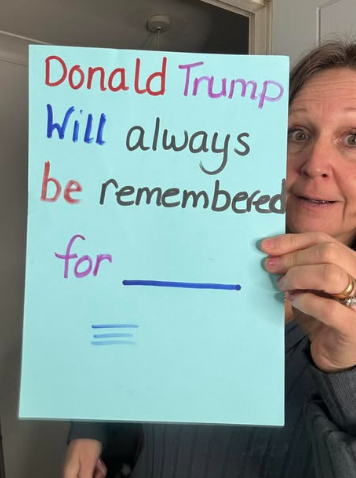 Donald Trump
Will always
be remembered
for ________